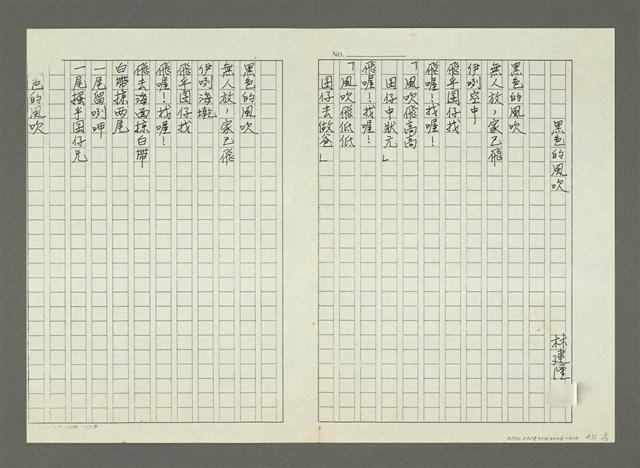 No.
黑色的風吹
林建隆
黑色的風吹
無人放，家己飛
伊咧空中
飛乎囝仔找
飛喔！找喔！
「風吹飛高高
囝仔中狀元」
飛喔！找喔！
「風吹飛低低
囝仔去做爸」
黑色的風吹
無人放，家己飛
伊咧海墘
飛乎囝仔找
飛喔！找喔！
飛去海面掠白帶
白帶掠兩尾
一尾留咧呷
一尾提乎囝仔兄
色的風吹